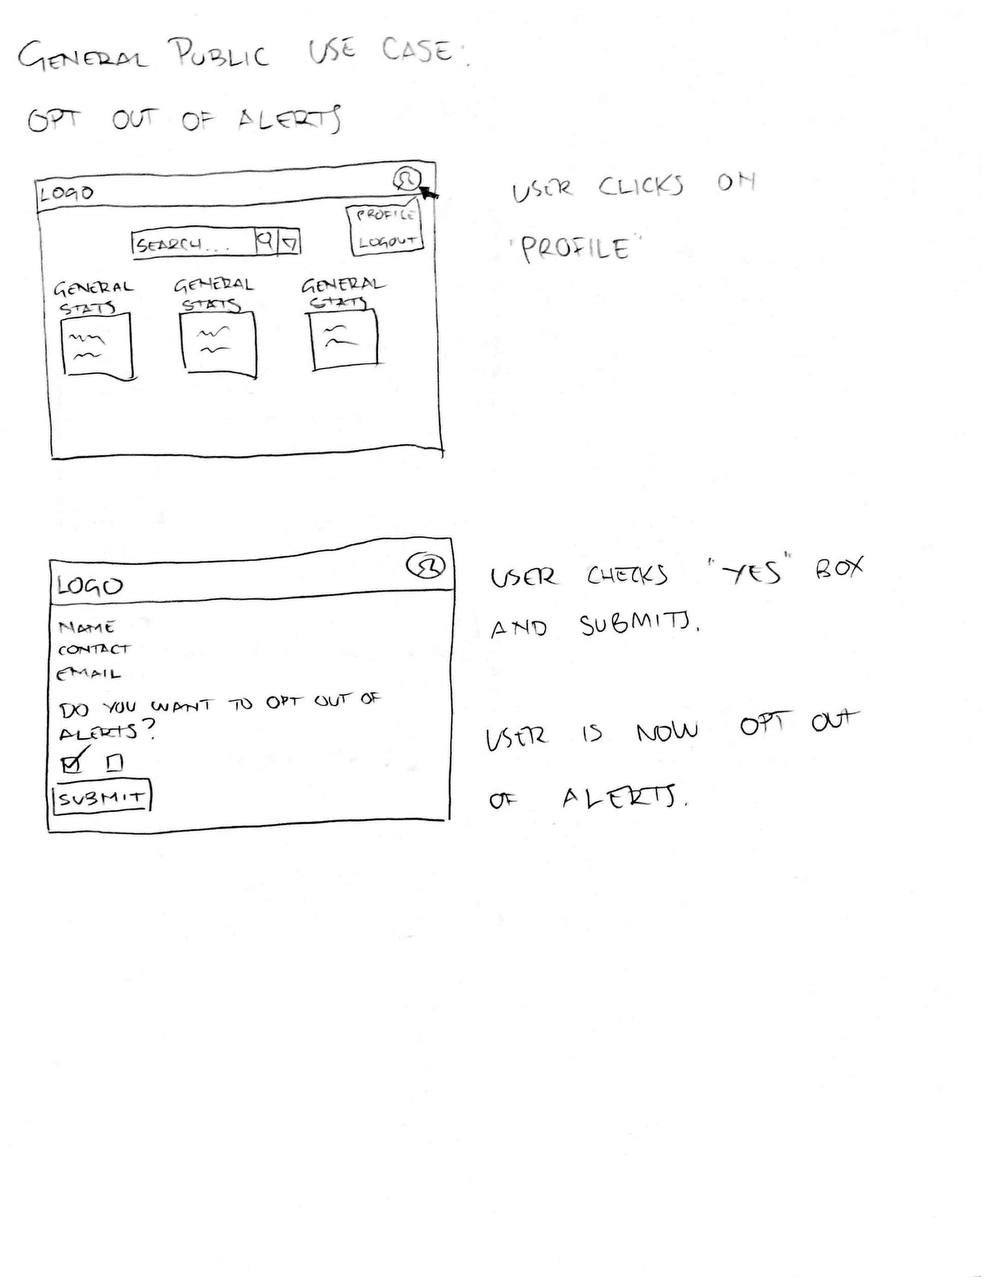 GENERAL PUBLIC USE CASE:
OPT OUT OF ALERTS
LOGO
PROFILE
LOGOUT
SEARCH...
GENERAL
STATS
GENERAL
STATS
GENERAL
STATS
USER CLICKS ON
"PROFILE"
LOGO
NAME
CONTACT
EMAIL
DO YOU WANT TO OPT OUT OF
ALERTS?
SUBMIT
USER CHECKS "YES" BOX
AND SUBMITS.
USER IS NOW OPT OUT
OF ALERTS.